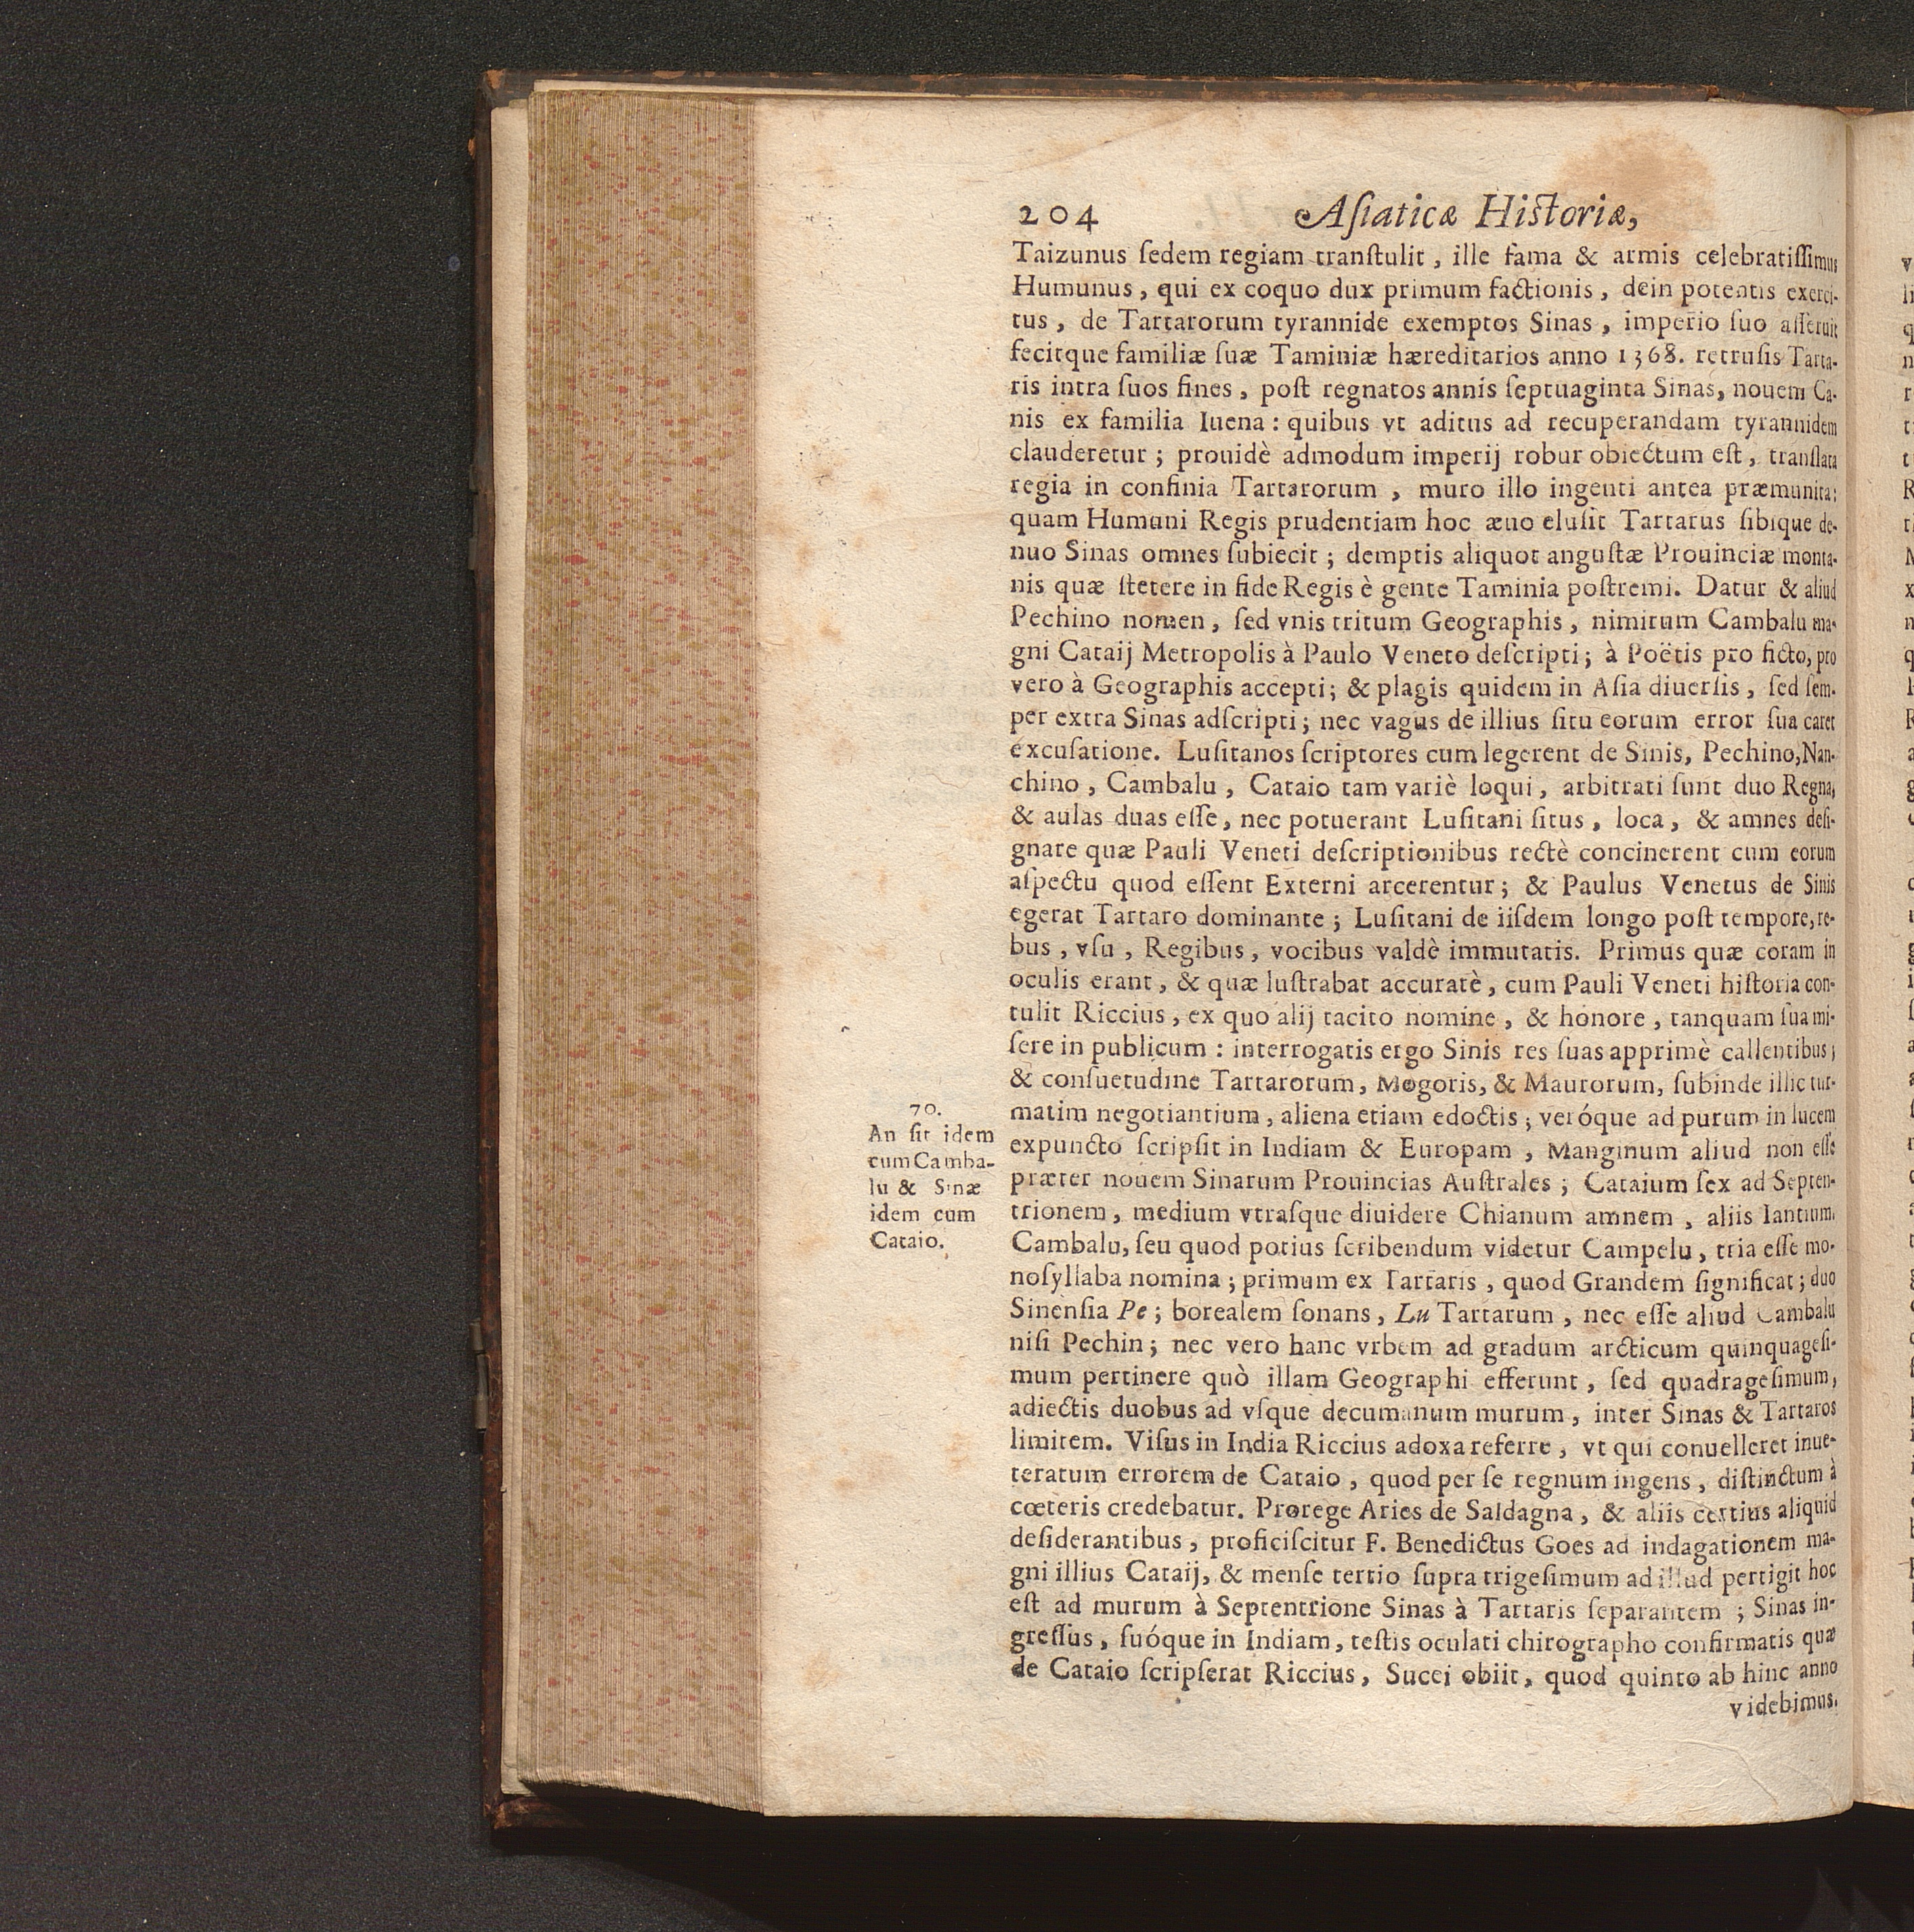 204 Aſiaticæ Hiſtoriæ,
Taizunus ſedem regiam tranſtulit, ille fama & armis celebratiſſimus
Humunus, qui ex coquo dux primum factionis, dein potentis exerci-
tus, de Tartarorum tyrannide exemptos Sinas, imperio ſuo aſſeruit
fecitque familiæ ſuæ Taminiæ hæreditarios anno 1368. retruſis Tarta-
ris intra ſuos fines, poſt regnatos annis ſeptuaginta Sinas, nouem Ca-
nis ex familia Iuena: quibus vt aditus ad recuperandam tyrannidem
clauderetur; prouidè admodum imperij robur obiectum eſt, tranſlata
regia in confinia Tartarorum, muro illo ingenti antea præmunita:
quam Humuni Regis prudentiam hoc æuo eluſit Tartarus ſibique de-
nuo Sinas omnes ſubiecit; demptis aliquot anguſtæ Prouinciæ monta-
nis quæ ſtetere in fide Regis è gente Taminia poſtremi. Datur & aliud
Pechino nomen, ſed vnis tritum Geographis, nimirum Cambalu ma-
gni Cataij Metropolis à Paulo Veneto deſcripti; à Poëtis pro ficto, pro
vero à Geographis accepti; & plagis quidem in Aſia diuerſis, ſed ſem-
per extra Sinas adſcripti; nec vagus de illius ſitu eorum error ſua caret
excuſatione. Luſitanos ſcriptores cum legerent de Sinis, Pechino, Nan-
chino, Cambalu, Cataio tam variè loqui, arbitrati ſunt duo Regna,
& aulas duas eſſe, nec potuerant Luſitani ſitus, loca, & amnes deſi-
gnare quæ Pauli Veneti deſcriptionibus rectè concinerent cum eorum
aſpectu quod eſſent Externi arcerentur; & Paulus Venetus de Sinis
egerat Tartaro dominante; Luſitani de iiſdem longo poſt tempore, re-
bus, vſu, Regibus, vocibus valdè immutatis. Primus quæ coram in
oculis erant, & quæ luſtrabat accuratè, cum Pauli Veneti hiſtoria con-
tulit Riccius, ex quo alij tacito nomine, & honore, tanquam ſua mi-
ſere in publicum: interrogatis ergo Sinis res ſuas apprimè callentibus;
& conſuetudine Tartarorum, Mogoris, & Maurorum, ſubinde illic tur-
matim negotiantium, aliena etiam edoctis; veróque ad purum in lucem
expuncto ſcripſit in Indiam & Europam, Manginum aliud non eſſe
præter nouem Sinarum Prouincias Auſtrales; Cataium ſex ad Septen-
trionem, medium vtraſque diuidere Chianum amnem, aliis Iantium.
Cambalu, ſeu quod potius ſcribendum videtur Campelu, tria eſſe mo-
noſyllaba nomina; primum ex Tartaris, quod Grandem ſignificat; duo
Sinenſia Pe; borealem ſonans, Lu Tartarum, nec eſſe aliud Cambalu
niſi Pechin; nec vero hanc vrbem ad gradum arcticum quinquageſi-
mum pertinere quò illam Geographi efferunt, ſed quadrageſimum,
adiectis duobus ad vſque decumanum murum, inter Sinas & Tartaros
limitem. Viſus in India Riccius adoxa referre, vt qui conuelleret inue-
teratum errorem de Cataio, quod per ſe regnum ingens, diſtinctum à
cœteris credebatur. Prorege Aries de Saldagna, & aliis certius aliquid
deſiderantibus, proficiſcitur F. Benedictus Goes ad indagationem ma-
gni illius Cataij, & menſe tertio ſupra trigeſimum ad illud pertigit hoc
eſt ad murum à Septentrione Sinas à Tartaris ſeparantem; Sinas in-
greſſus, ſuóque in Indiam, teſtis oculati chirographo confirmatis quæ
de Cataio ſcripſerat Riccius, Sucei obiit, quod quinto ab hinc anno
videbimus.
70.
An ſit idem
cum Camba-
lu & Sinæ
idem cum
Cataio.